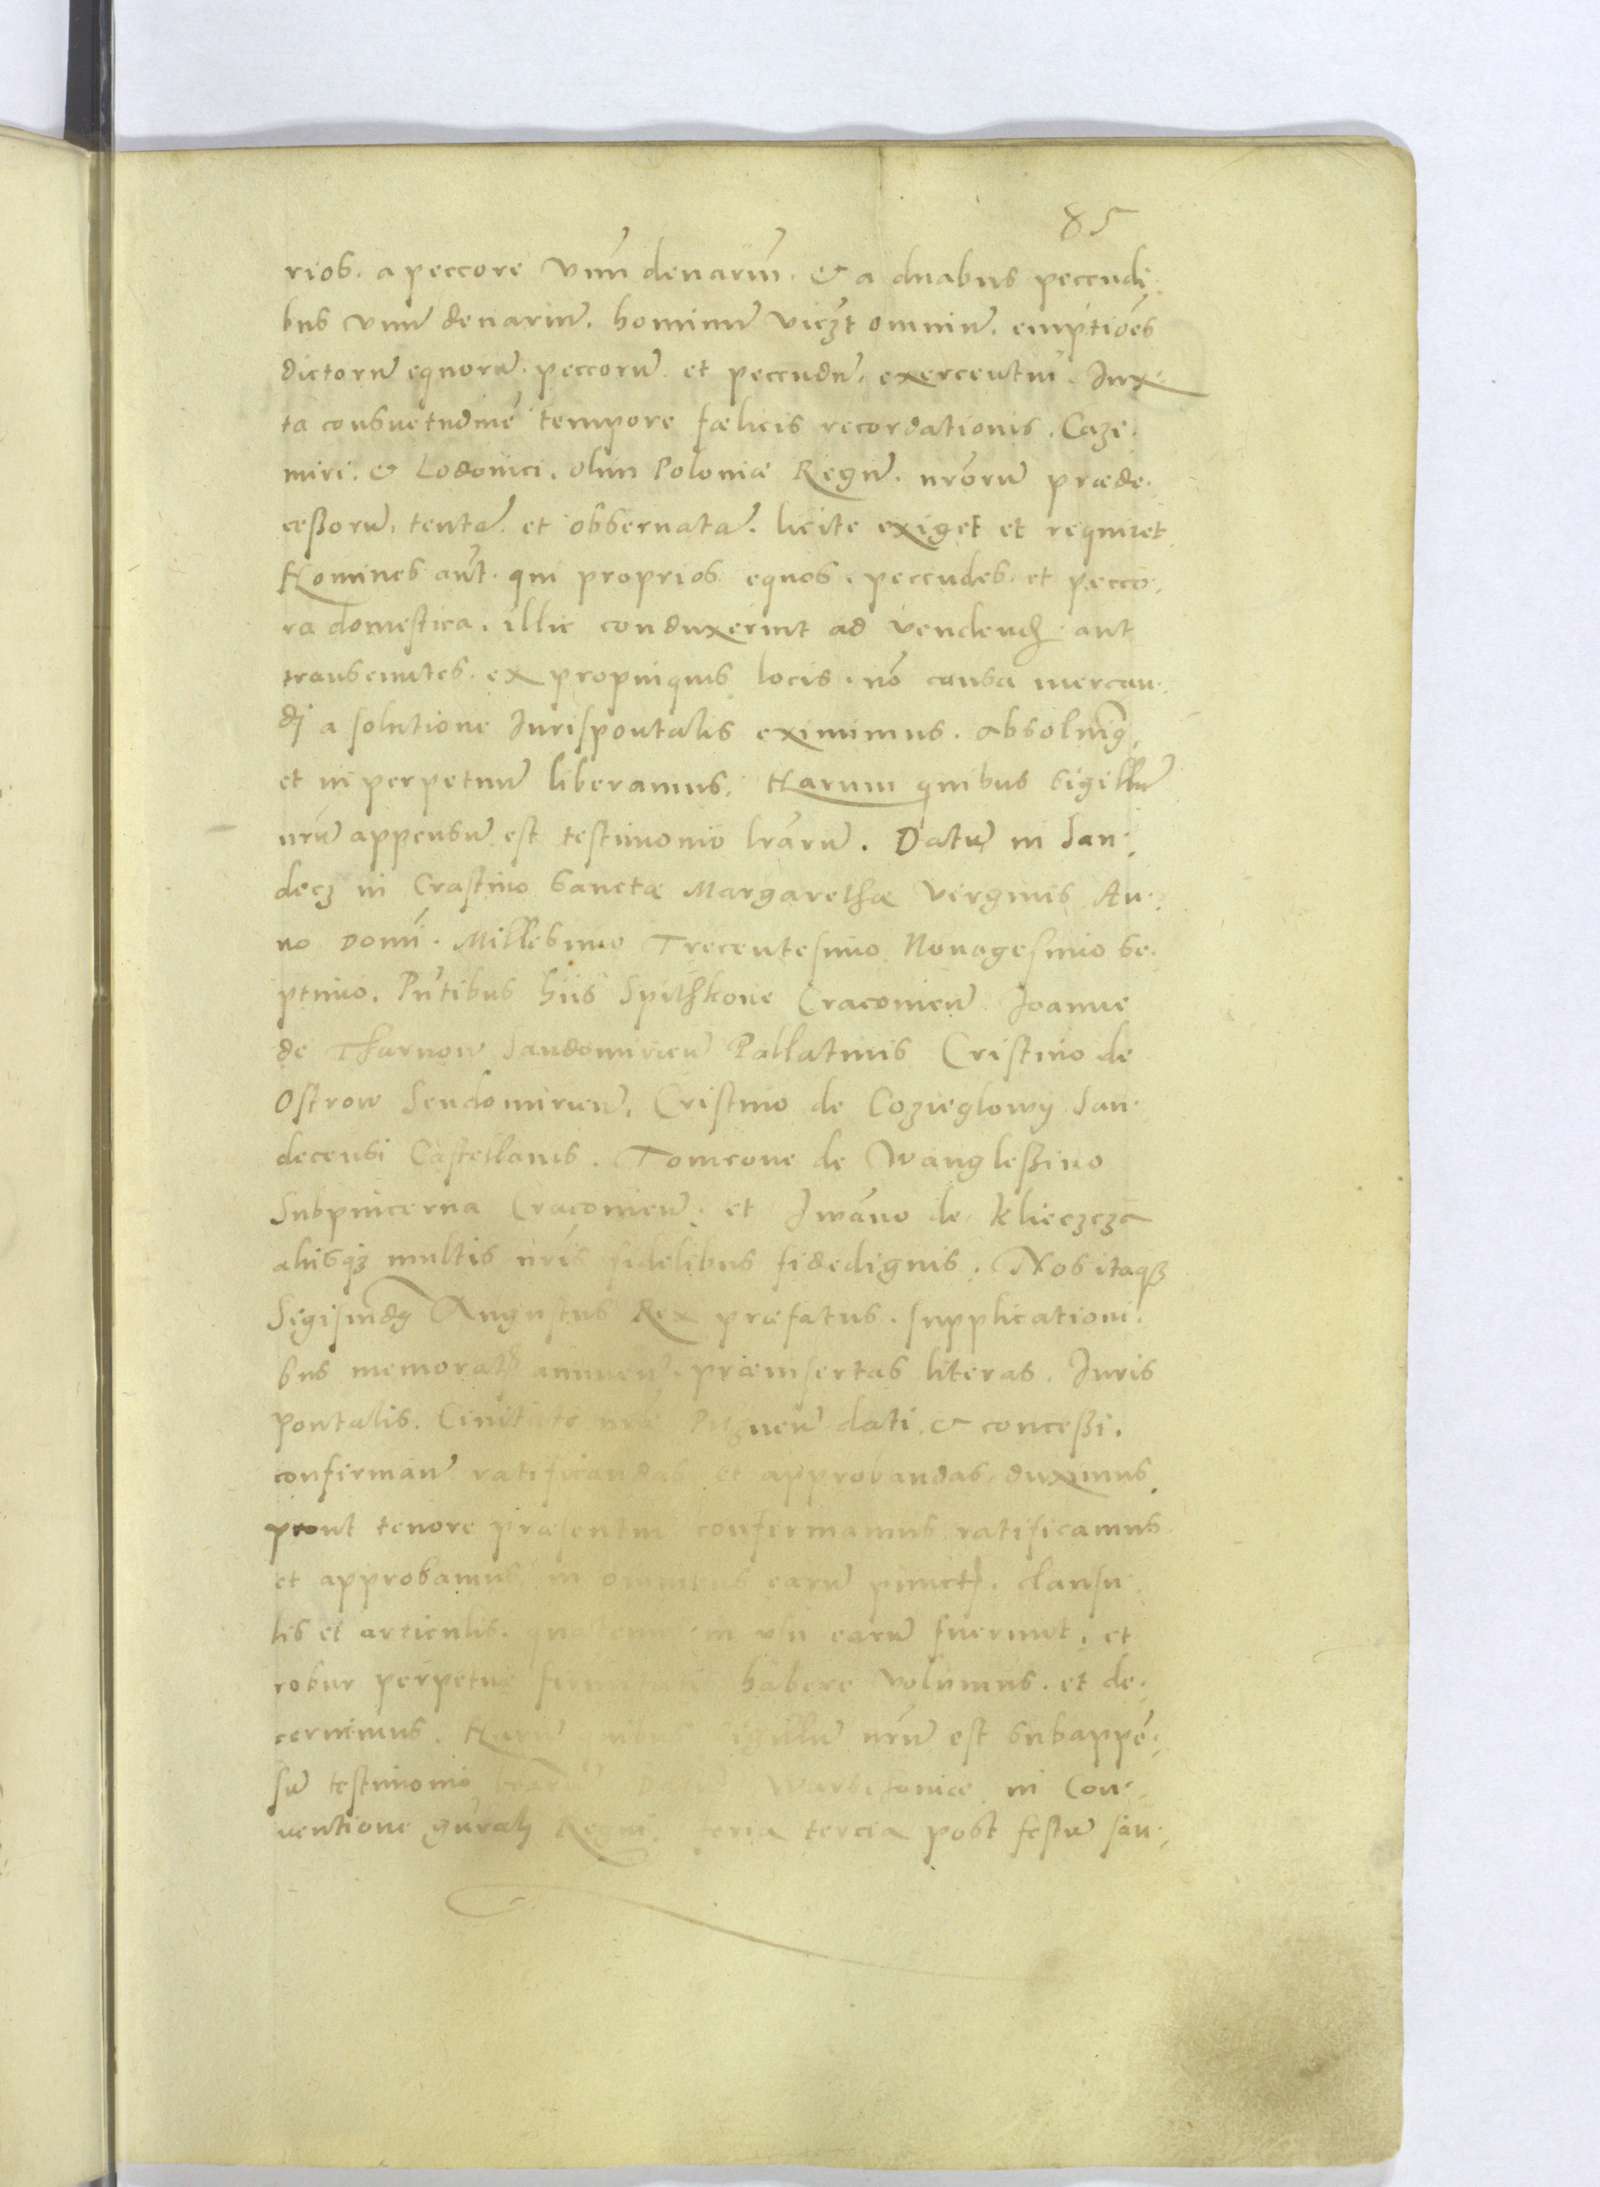 85
rios. a peccore vnū denariū. & a duabus peccudi.
bus vnū denariū. hominū viczt omniū. emptiōes
dictorū equorū. peccorū et peccudū. exercentiū. Iux
ta consuetudinē tempore fælicis recordationis. Cazi.
miri. & Lodouici. olim Poloniæ Regū. nrōrū præde.
ceßorū. tentā et obseruatā. licite exiget et requiret
Homines aūt. qui proprios equos. peccudes. et pecco.
ra domestica. illic conduxerint ad vendend. aut
transeuntes. ex propinquis locis. nō causa mercan.
dj a solutione Iurispontalis eximimus. absoluimꝰ.
et in perpetuū liberamus. Harum quibus sigillū
nrū appensū est testimonio lrārū. Datū in San.
decz in Crastino Sanctæ Margarethæ virginis An.
no Domi. Millesimo Trecentesimo Nonagesimo se.
ptimo. Pntibus hiis Spithkone Cracouieñ. Joanne
de Tharnow Sandomirieñ Pallatinis Cristino de
Ostrow Sendomirieñ. Cristino de Cozieglowy San.
decensi Castellanis. Tomcone de Wangleßino
Subpincerna Cracouieñ. et Iwāno de Klieczcza
aliisqꝫ multis nrīs fidelibus fidedignis. Nos itaqꝫ
Sigismdꝰ Augustus Rex præfatus. supplicationi.
bus memorat annueñ. præinsertas literas. Iuris
pontalis. Ciuitate nrā dati. & conceßi.
confirmañ ratificandas et approbandas duximus.
prout tenore præsentiū confirmamus ratificamus
et approbamus in omnibus earū punct. clausu.
lis et articulis. quatenus in vsu earū fuerunt. et
robur perpetuæ firmitatis habere volumus. et de.
cernimus. Harū quibus sigillū nrū est subappē.
sū testimonio lrarū Datū in Con.
uentione gnrali Regni. feria tercia post festū san.